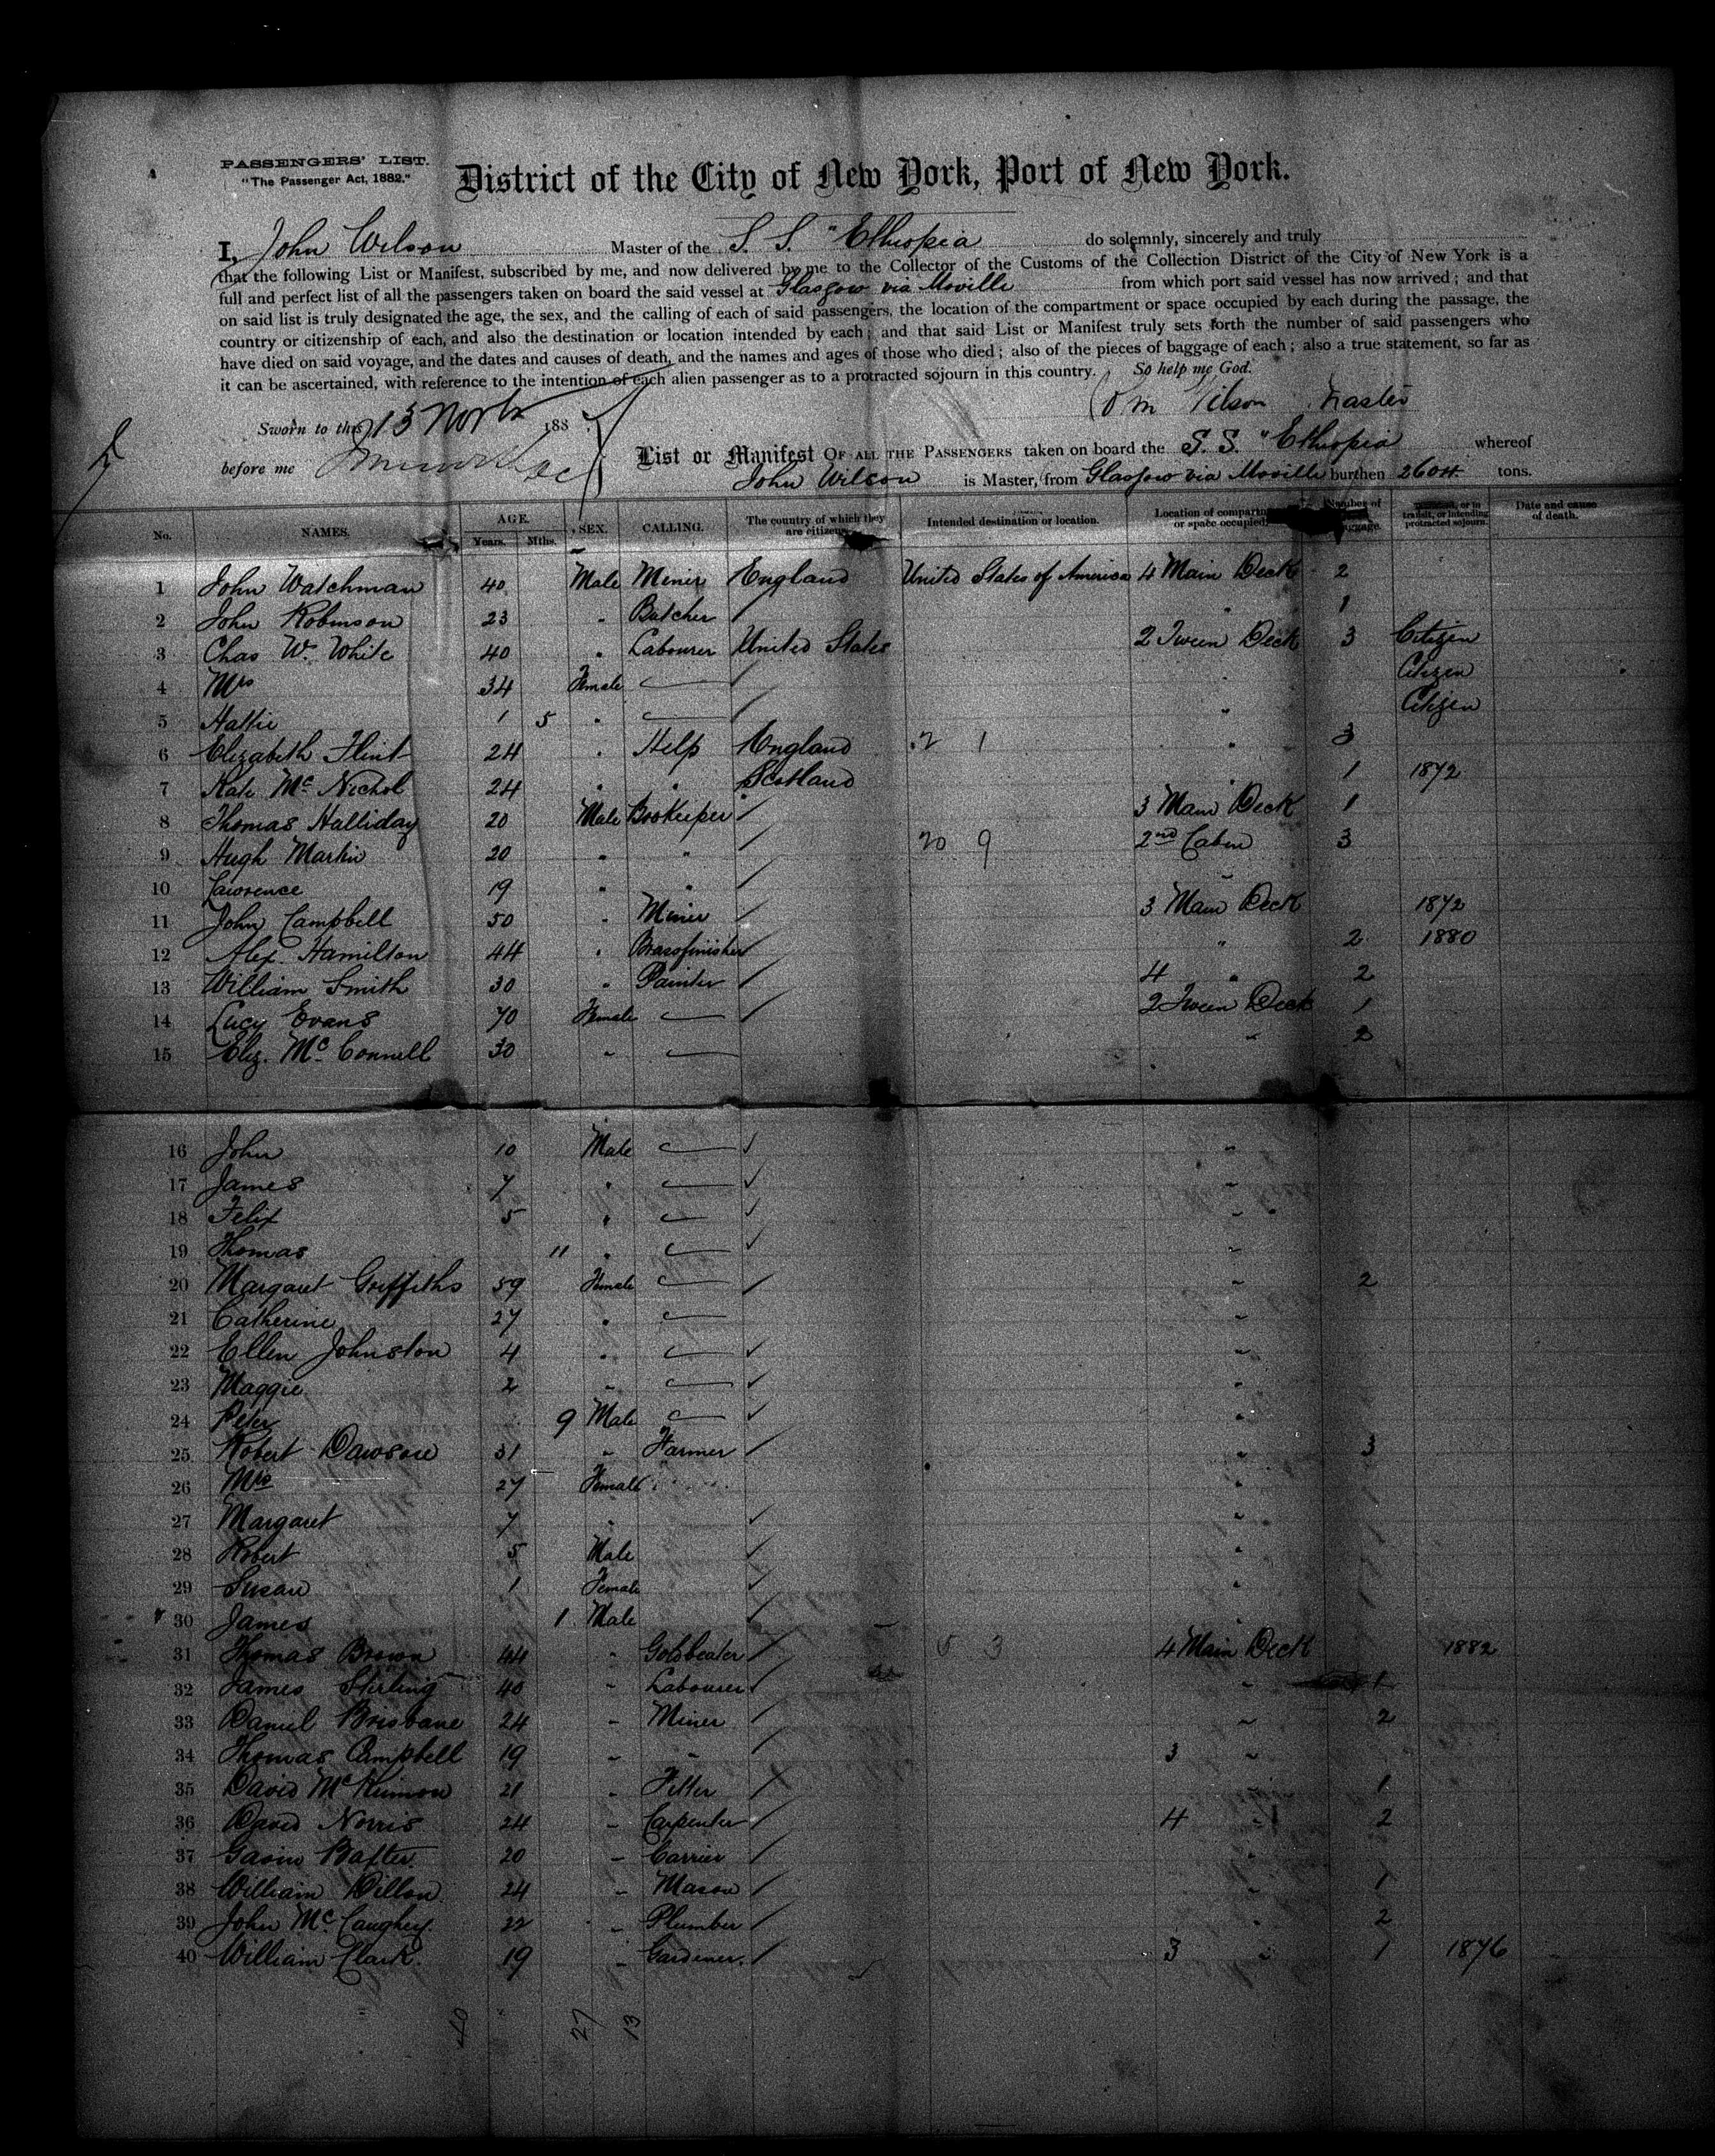 PASSENGERS' LIST.
"The Passenger Act, 1882."
District of the City of New York, Port of New York.
I, John Wilson Master of the S. S. "Ethiopia do solemnly, sincerely and truly
that the following List or Manifest, subscribed by me, and now delivered by me to the Collector of the Customs of the Collection District of the City of New York is a
full and perfect list of all the passengers taken on board the said vessel at Glasgow via Moville from which port said vessel has now arrived; and that
on said list is truly designated the age, the sex, and the calling of each of said passengers, the location of the compartment or space occupied by each during the passage, the
country or citizenship of each, and also the destination or location intended by each; and that said List or Manifest truly sets forth the number of said passengers who
have died on said voyage, and the dates and causes of death, and the names and ages of those who died; also of the pieces of baggage of each; also a true statement, so far as
it can be ascertained, with reference to the intention of each alien passenger as to a protracted sojourn in this country. So help me God.
Wilson Master
Sworn to this 13 188
before me
List or Manifest OF ALL THE PASSENGERS taken on board the S. S. "Ethiopia whereof
John Wilson is Master, from Glasgow via Moville burthen 2604 tons.
No. NAMES. AGE. Years. Mths. SEX. CALLING. The country of which they are citizens. Intended destination or location. Location of compartment or space occupied. Number of baggage. transit, or intending protracted sojourn. Date and cause of death.
1 John Watchman 40 Male Miner England United States of America 4 Main Deck 2
2 John Robinson 23 " Butcher " 1
3 Chas W. White 40 " Labourer United States 2 Tween Deck 3 Citizen
4 Mrs 34 Female " Citizen
5 Hattie 1 5 " " Citizen
6 Elizabeth Flint 24 " Help England 2 1 " 3
7 Kate Mc Nichol 24 " " Scotland " 1 1872
8 Thomas Halliday 20 Male Bookeeper 3 Main Deck 1
9 Hugh Martin 20 " " 20 9 2nd Cabin 3
10 Lawrence 19 " " "
11 John Campbell 50 " Miner 3 Main Deck 1872
12 Alex. Hamilton 44 " Brassfinisher " 2 1880
13 William Smith 30 " Painter 4 " 2
14 Lucy Evans 70 Female 2 Tween Deck 1
15 Eliz. Mc Connell 30 " " 2
16 John 10 Male "
17 James 7 " "
18 Felix 5 " "
19 Thomas 11 " "
20 Margaret Griffiths 59 Female " 2
21 Catherine 27 " "
22 Ellen Johnston 4 " "
23 Maggie 2 " "
24 Peter 9 Male "
25 Robert Dawson 31 " Farmer " 3
26 Mrs 27 Female "
27 Margaret 7 " "
28 Robert 5 Male "
29 Susan 1 Female "
30 James 1 Male "
31 Thomas Brown 44 " Goldbeater 5 3 4 Main Deck 1882
32 James Stirling 40 " Labourer " 1
33 Daniel Brisbane 24 " Miner " 2
34 Thomas Campbell 19 " " 3 "
35 David McKinnon 21 " Fitter 1
36 David Norris 24 " Carpenter 4 " 2
37 Gavin Baxter 20 " Carrier "
38 William Dillon 24 " Mason " 1
39 John Mc Caughey 22 " Plumber " 2
40 William Clark 19 " Gardener. 3 " 1 1876
40 27 13